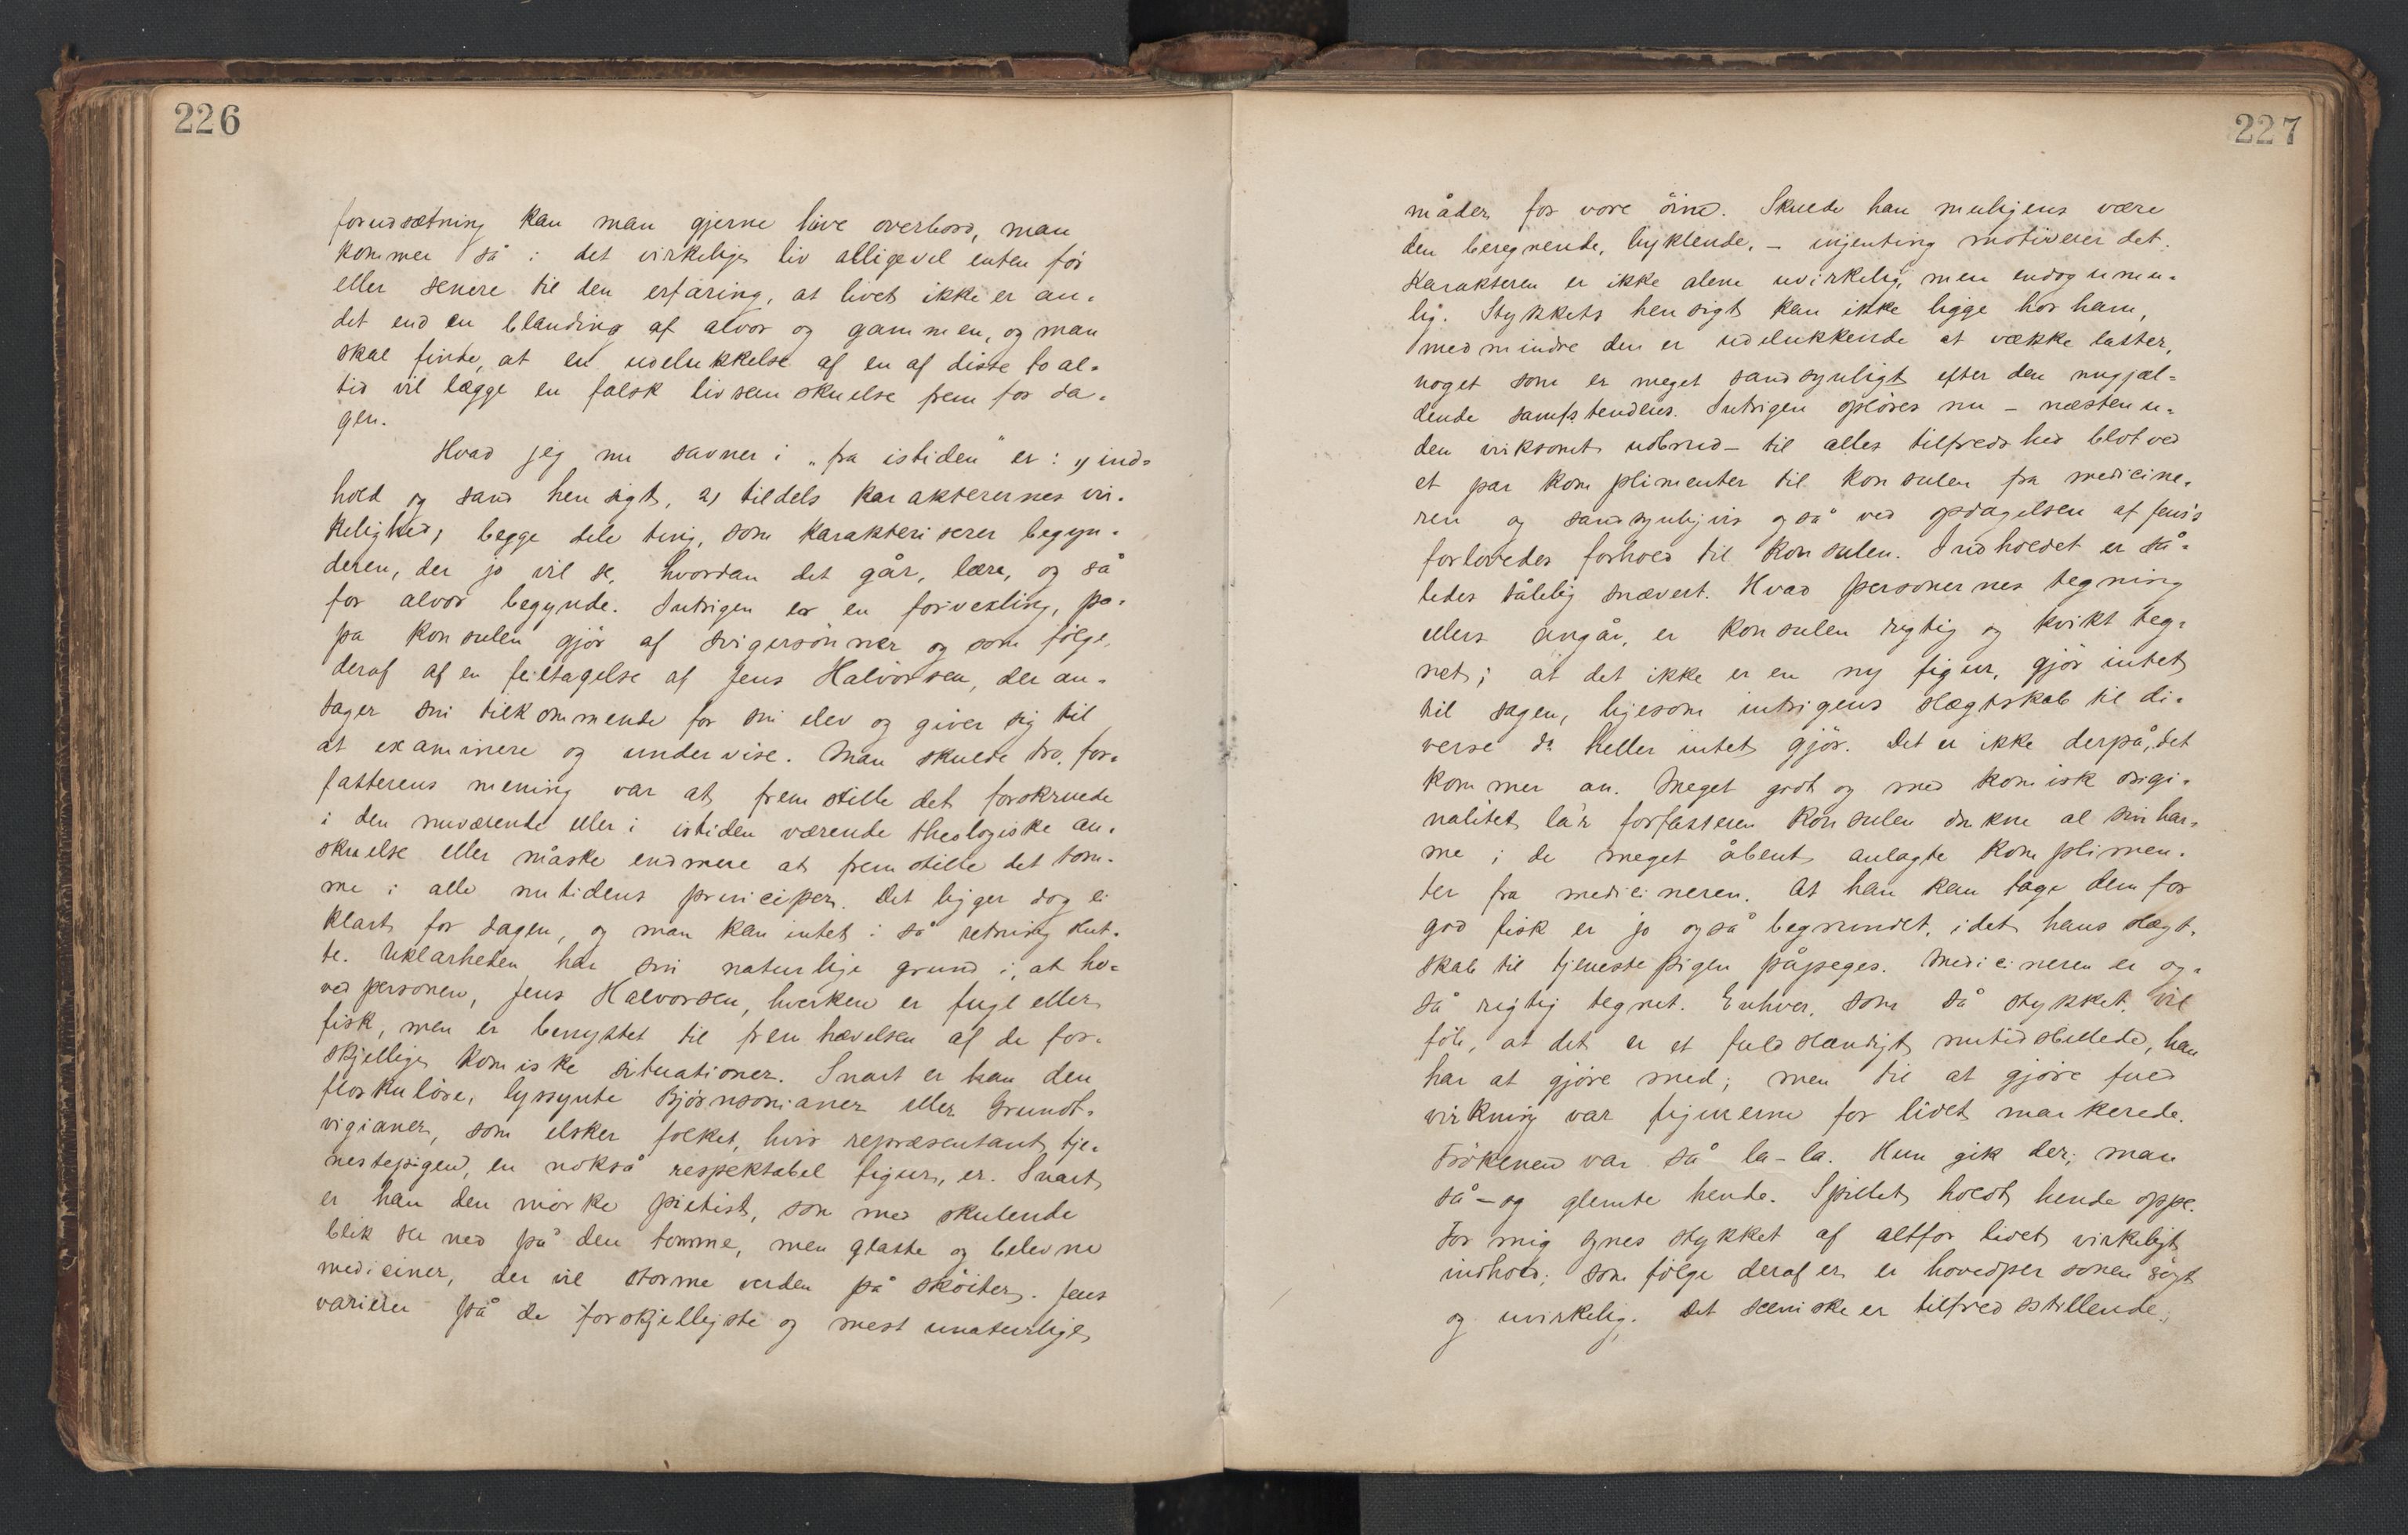 226
forudsætning kan man gjerne hive overbord, man
kommer så i det virkelige liv alligevel enten før
eller senere til den erfaring, at livet ikke er an-
det end en blanding af alvor og gammen, og man
skal finde, at en udelukkelse af en af disse to al-
tid vil lægge en falsk livsanskuelse frem for da-
gen.
Hvad jeg nu savner i "fra istiden" er: 1) ind-
hold og sand hensigt, 2) tildels karakterernes vir-
kelighed, begge dele ting, som karakteriserer begyn-
deren, der jo vil se, hvordan det går, lære, og så
for alvor begynde. Intrigen er en forvexling, pa-
pa konsulen gjør af svigersønner og som følge
deraf af en feiltagelse af Jens Halvorsen, der an-
tager sin tilkommende for sin elev og giver sig til
at examinere og undervise. Man skulde tro, for-
fatterens mening var at fremstille det forskruede
i den nuværende eller i istiden værende theologiske an-
skuelse eller måske endmere at fremstille det tom-
me i alle nutidens principer. Det ligger dog ei
klart for dagen, og man kan intet i så retning slut-
te. Uklarheden har sin naturlige grund i, at ho-
vedpersonen, Jens Halvorsen, hverken er fugl eller
fisk, men er benyttet til fremhævelsen af de for-
skjellige komiske situationer. Snart er han den
floskuløse, lyssynte Bjørnsonianer eller Grundt-
vigianer, som elsker folket, hvis repræsentant, tje-
nestepigen, en nokså respektabel figur, er. Snart
er han den mørke pietist, som med skulende
blik ser ned på den tomme, men glatte og belevne
mediciner, der vil storme verden på skøiter. Jens
varierer på de forskjelligste og mest unaturlige
227
måder for vore øine. Skulde han muligens være
den beregnende, hyklende, - ingenting motiverer det.
Karakteren er ikke alene uvirkelig, men endog umu-
lig. Stykkets hensigt kan ikke ligge hos ham,
medmindre den er udelukkende at vække latter,
noget som er meget sandsynligt efter den nugjæl-
dende samfs.tendens. Intrigen opløses nu - næsten u-
den virksomt udbrud - til alles tilfredshed blot ved
et par komplimenter til konsulen fra medicine-
ren og sandsynligvis også ved opdagelsen af Jens's
forlovedes forhold til konsulen. Indholdet er så-
ledes tålelig snævert. Hvad personernes tegning
ellers angår, er konsulen rigtig og kvikt teg-
net; at det ikke er en ny figur, gjør intet
til sagen, ligesom intrigens slægtskab til di-
verse do heller intet gjør. Det er ikke derpå, det
kommer an. Meget godt og med komisk origi-
nalitet lar forfatteren konsulen drukne al sin har-
me i de meget åbent anlagte komplimen-
ter fra medicineren. At han kan tage dem for
god fisk er jo også begrundet, idet hans slægt-
skab til tjenestepigen påpeges. Medicineren er og-
så rigtig tegnet. Enhver, som så stykket, vil
føle, at det er et fuldstændigt nutidsbillede, han
har at gjøre med; men til at gjøre fuld
virkning var figurerne for lidet markerede.
Frøkenen var så la-la. Hun gik der; man
så - og glemte hende. Spillet holdt hende oppe.
For mig synes stykket af altfor lidet virkeligt
indhold; som følge deraf er er hovedpersonen søgt
og uvirkelig. Det sceniske er tilfredsstillende,